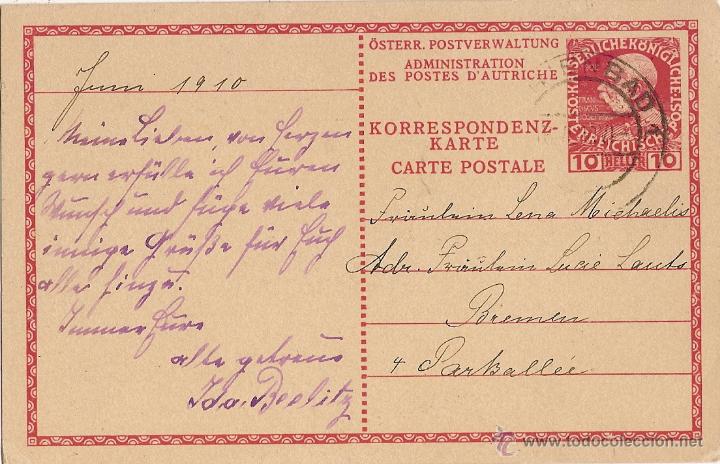 Juni 1910
Meine Lieben, von Herzen
gern erfülle ich Euren
Wunsch und füge viele
innige Grüße für Euch
alle hinzu.
Immer Eure
alte getreue
Ida Beelitz
ÖSTERR. POSTVERWALTUNG
ADMINISTRATION
DES POSTES D'AUTRICHE
KORRESPONDENZ-
KARTE
CARTE POSTALE
KAISERLICHEKÖNIGLICHE
10 HELLER 10
Fräulein Lena Michaelis
Adr. Fräulein Lucie Lauts
Bremen
4 Parkallée
todocoleccion.net